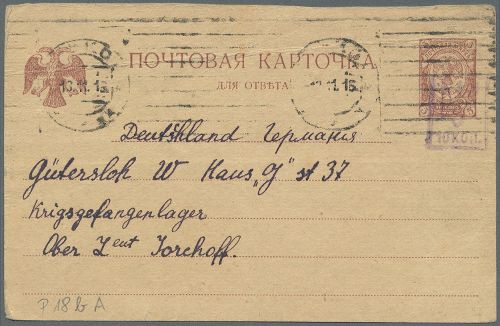 ПОЧТОВАЯ КАРТОЧКА
ДЛЯ ОТВѢТА
10 КОП.
Deutshland Германия
Gütersloh W Haus „J" st 37
Krigsgefangenlager
Ober Leut Torchoff.
P 18 b A